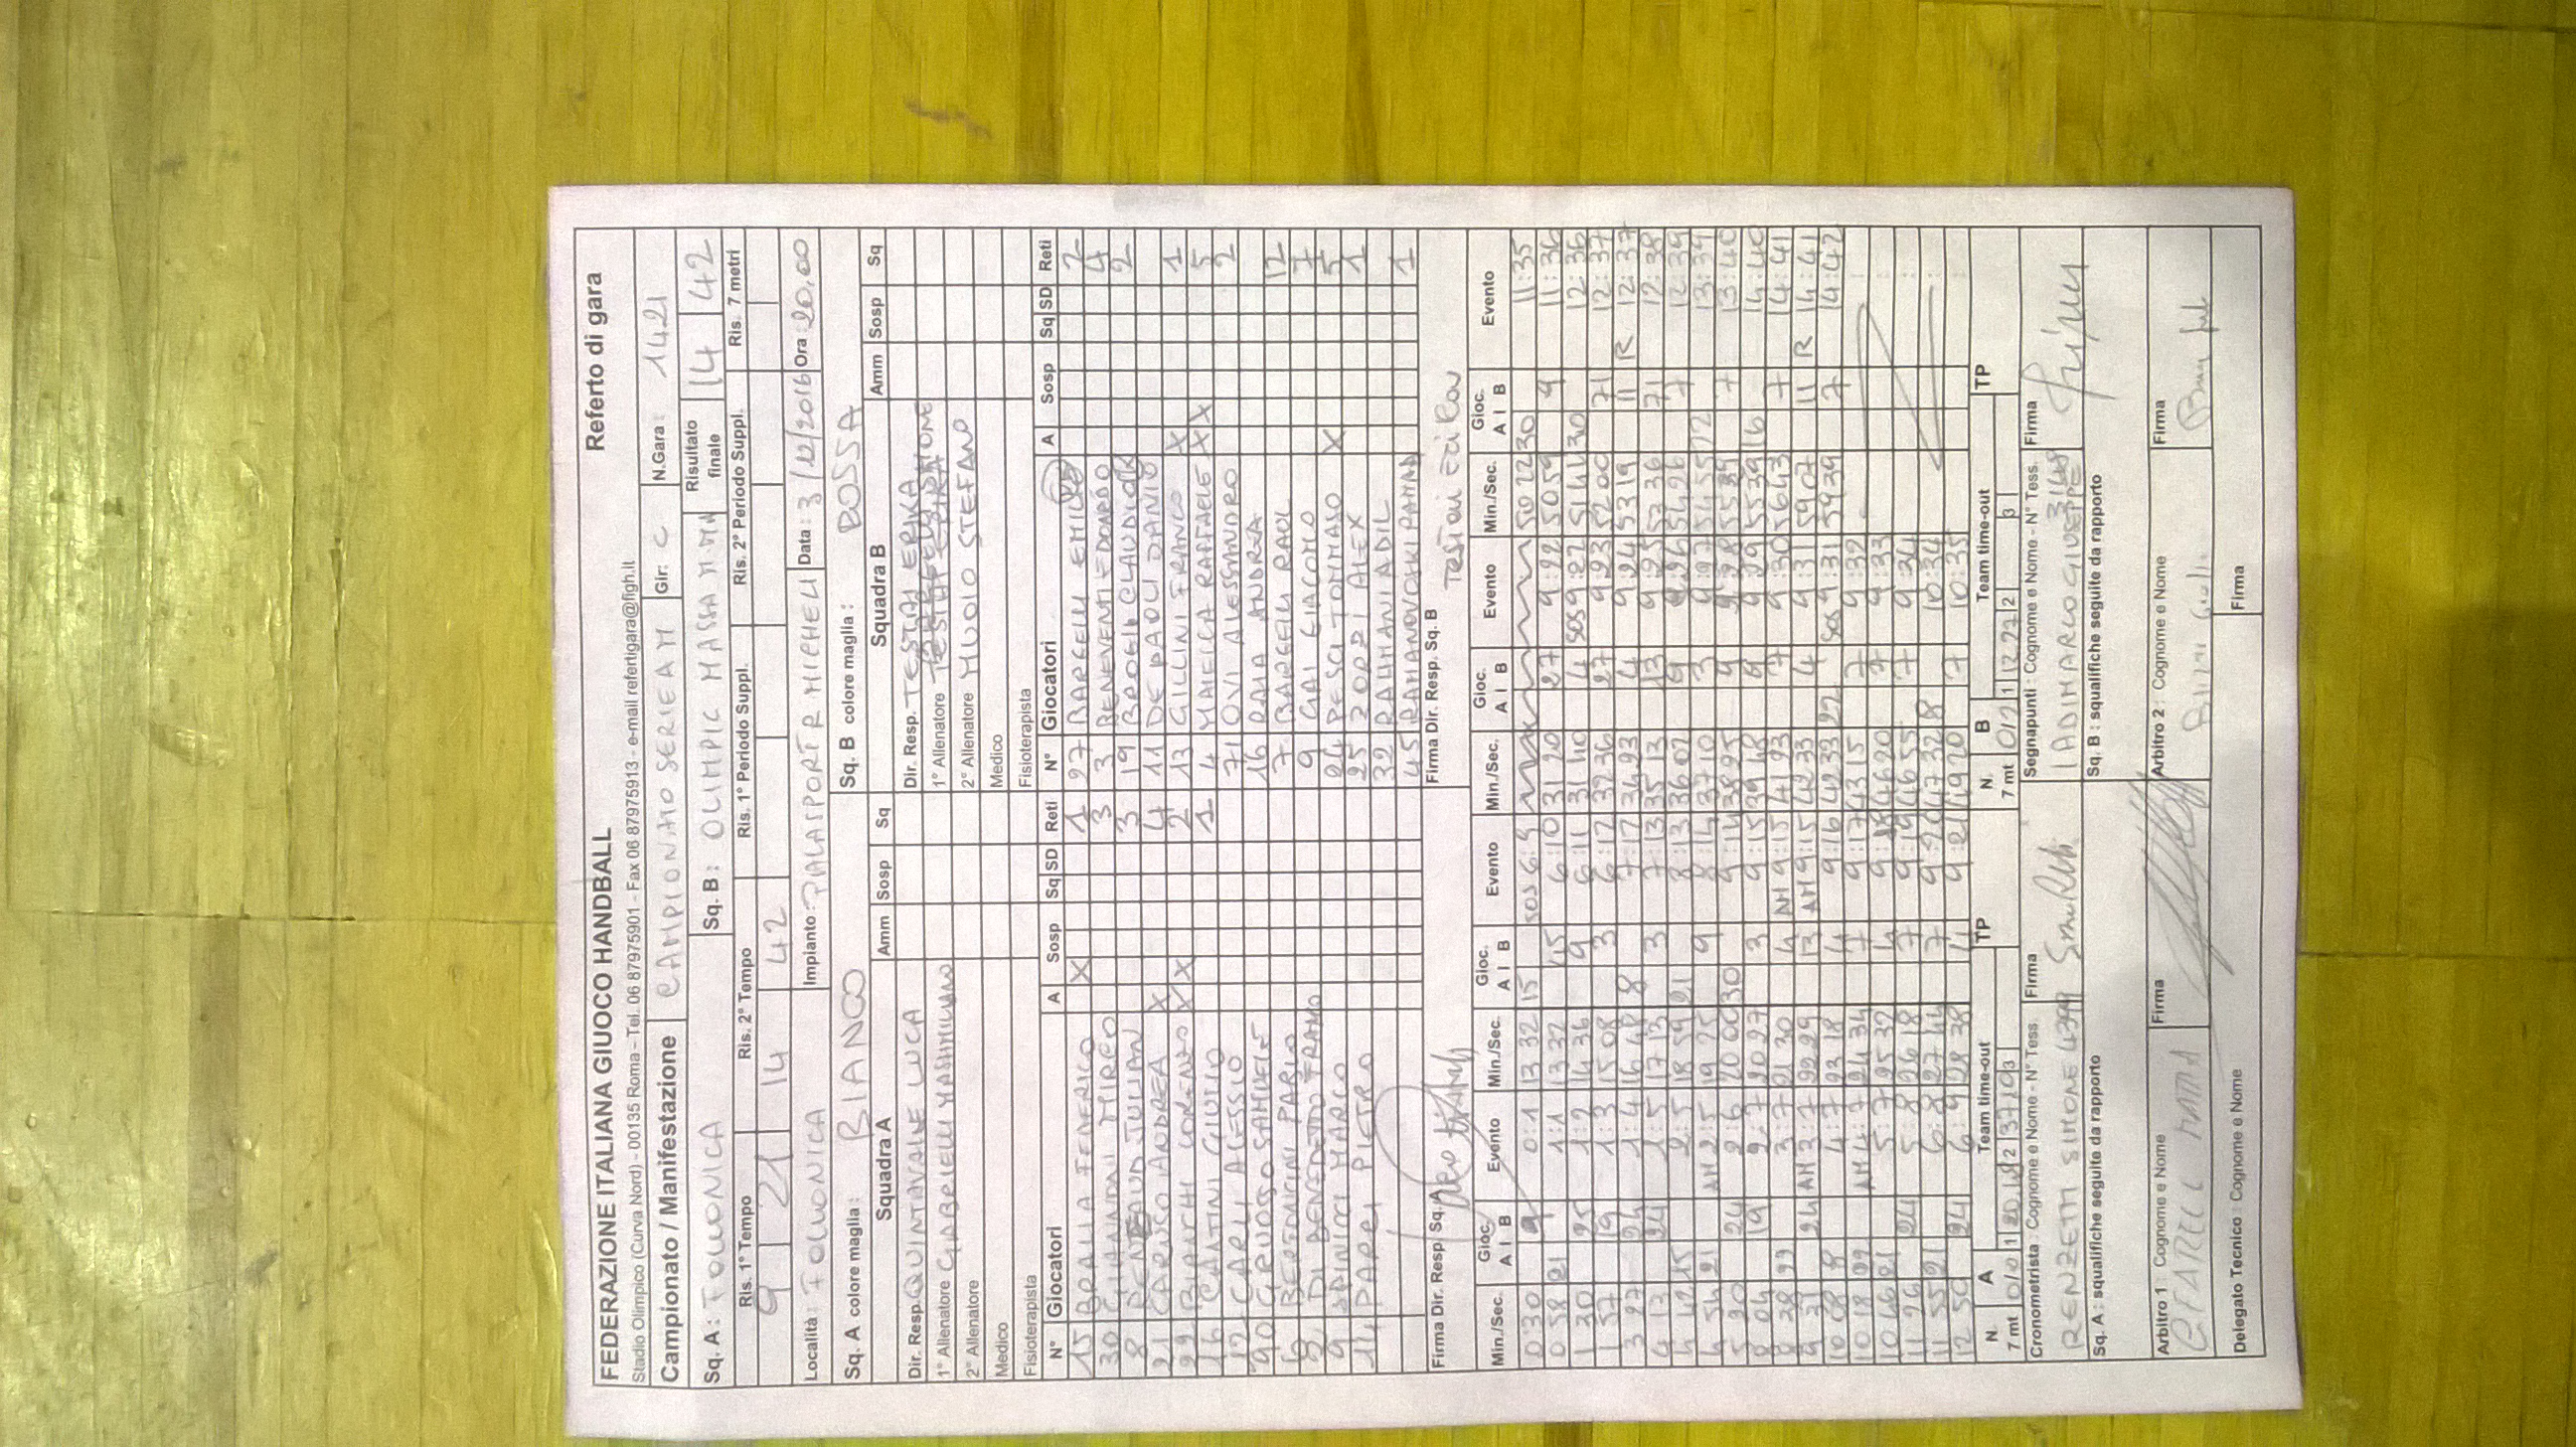 FEDERAZIONE ITALIANA GIUOCO HANDBALL Referto di gara
Stadio Olimpico (Curva Nord) - 00135 Roma - Tel. 06 87975901 - Fax 06 87975913 - e-mail refertigara@figh.it
Campionato / Manifestazione CAMPIONATO SERIE A M Gir: C N.Gara: 1421
Sq. A: FOLLONICA Sq. B: OLIMPIC MASSA M.MA Risultato finale 14 42
Ris. 1° Tempo Ris. 2° Tempo Ris. 1° Periodo Suppl. Ris. 2° Periodo Suppl. Ris. 7 metri
9 21 14 42
Località: FOLLONICA Impianto: Data: 3/12/2016 Ora: 20,00
Sq. A colore maglia: BIANCO Sq. B colore maglia: ROSSA
Squadra A Amm Sosp Sq Squadra B Amm Sosp Sq
Dir. Resp. QUINTAVALLE LUCA Dir. Resp. TESTAI ERIKA
1° Allenatore GABRIELLI MASSIMILIANO 1° Allenatore
2° Allenatore 2° Allenatore MUOIO STEFANO
Medico Medico
Fisioterapista Fisioterapista
N° Giocatori A Sosp Sq SD Reti N° Giocatori A Sosp Sq SD Reti
15 BRALIA FEDERICO X 1 27 BARGELLI EMIL 2
30 MIRCO 3 3 BENEVENTI EDOARDO 4
8 JULIAN 3 19 CLAUDIO 2
21 CARUSO ANDREA X 4 11 DE PAOLI DANILO
22 BIANCHI LORENZO X X 2 13 GILLINI FRANCO X 1
16 GIULIO 1 4 MAIELLA RAFFAELE X X 5
12 CARLI ALESSIO 71 OVI ALESSANDRO 2
90 SAMUELE 16 RAIA ANDREA
7 BARGELLI RAUL 12
9 GAI GIACOMO 7
9 MARCO 24 PESCI TOMMASO X 5
14 PARRI PIETRO 25 ZORZI ALEX 1
32 RAHMANI ADIL
45 1
Firma Dir. Resp. Sq. A Firma Dir. Resp. Sq. B
Min./Sec. Gioc. A I B Evento Min./Sec. Gioc. A I B Evento Min./Sec. Gioc. A I B Evento Min./Sec. Gioc. A I B Evento
0 30 9 0:1 13 32 15 SOS 6:9 50 22 30 11:35
0 58 21 1:1 13 32 45 6:10 31 20 27 9:22 50 59 9 11:36
1 30 25 1:2 14 36 9 6:11 31 40 4 SOS 9:22 51 44 30 12:36
1 57 19 1:3 15 08 3 6:12 32 36 27 9:23 52 00 71 12:37
3 27 24 1:4 16 48 8 7:12 34 23 4 9:24 53 19 11 R 12:37
4 13 24 1:5 17 13 3 7:13 35 13 13 9:25 53 36 71 12:38
4 42 15 2:5 18 59 21 8:13 36 02 9 9:26 54 26 7 12:39
4 54 21 AM 2:5 19 25 9 8:14 37 10 3 9:27 54 55 22 13:39
5 30 24 2:6 20 00 30 9:14 38 25 9 9:28 55 39 7 13:40
8 04 19 2:7 20 27 3 9:15 39 48 9 9:29 55 39 16 14:40
8 38 22 3:7 21 30 4 AM 9:15 41 23 7 9:30 56 43 7 14:41
9 31 24 AM 3:7 22 29 13 AM 9:15 42 33 4 9:31 59 07 11 R 14:41
10 08 8 4:7 23 18 4 9:16 42 33 22 SOS 9:31 59 39 7 14:42
10 18 22 AM 4:7 24 34 7 9:17 43 15 7 9:32
10 46 21 5:7 25 32 4 9:18 46 20 7 9:33
11 26 24 5:8 26 18 7 9:19 46 55 7 9:34
11 55 21 6:8 27 44 7 9:20 47 32 8 10:34
12 50 24 6:9 28 38 4 9:21 49 20 7 10:35
N. 7 mt A 0/0 Team time-out 1 2 3 TP N. 7 mt B 0/2 Team time-out 1 12 27 2 3 TP
Cronometrista: Cognome e Nome - N° Tess. Firma Segnapunti: Cognome e Nome - N° Tess. Firma
RENZETTI SIMONE 4399 IADIMARCO GIUSEPPE 3148
Sq. A: squalifiche seguite da rapporto Sq. B: squalifiche seguite da rapporto
Arbitro 1: Cognome e Nome Firma Arbitro 2: Cognome e Nome Firma
Delegato Tecnico: Cognome e Nome Firma